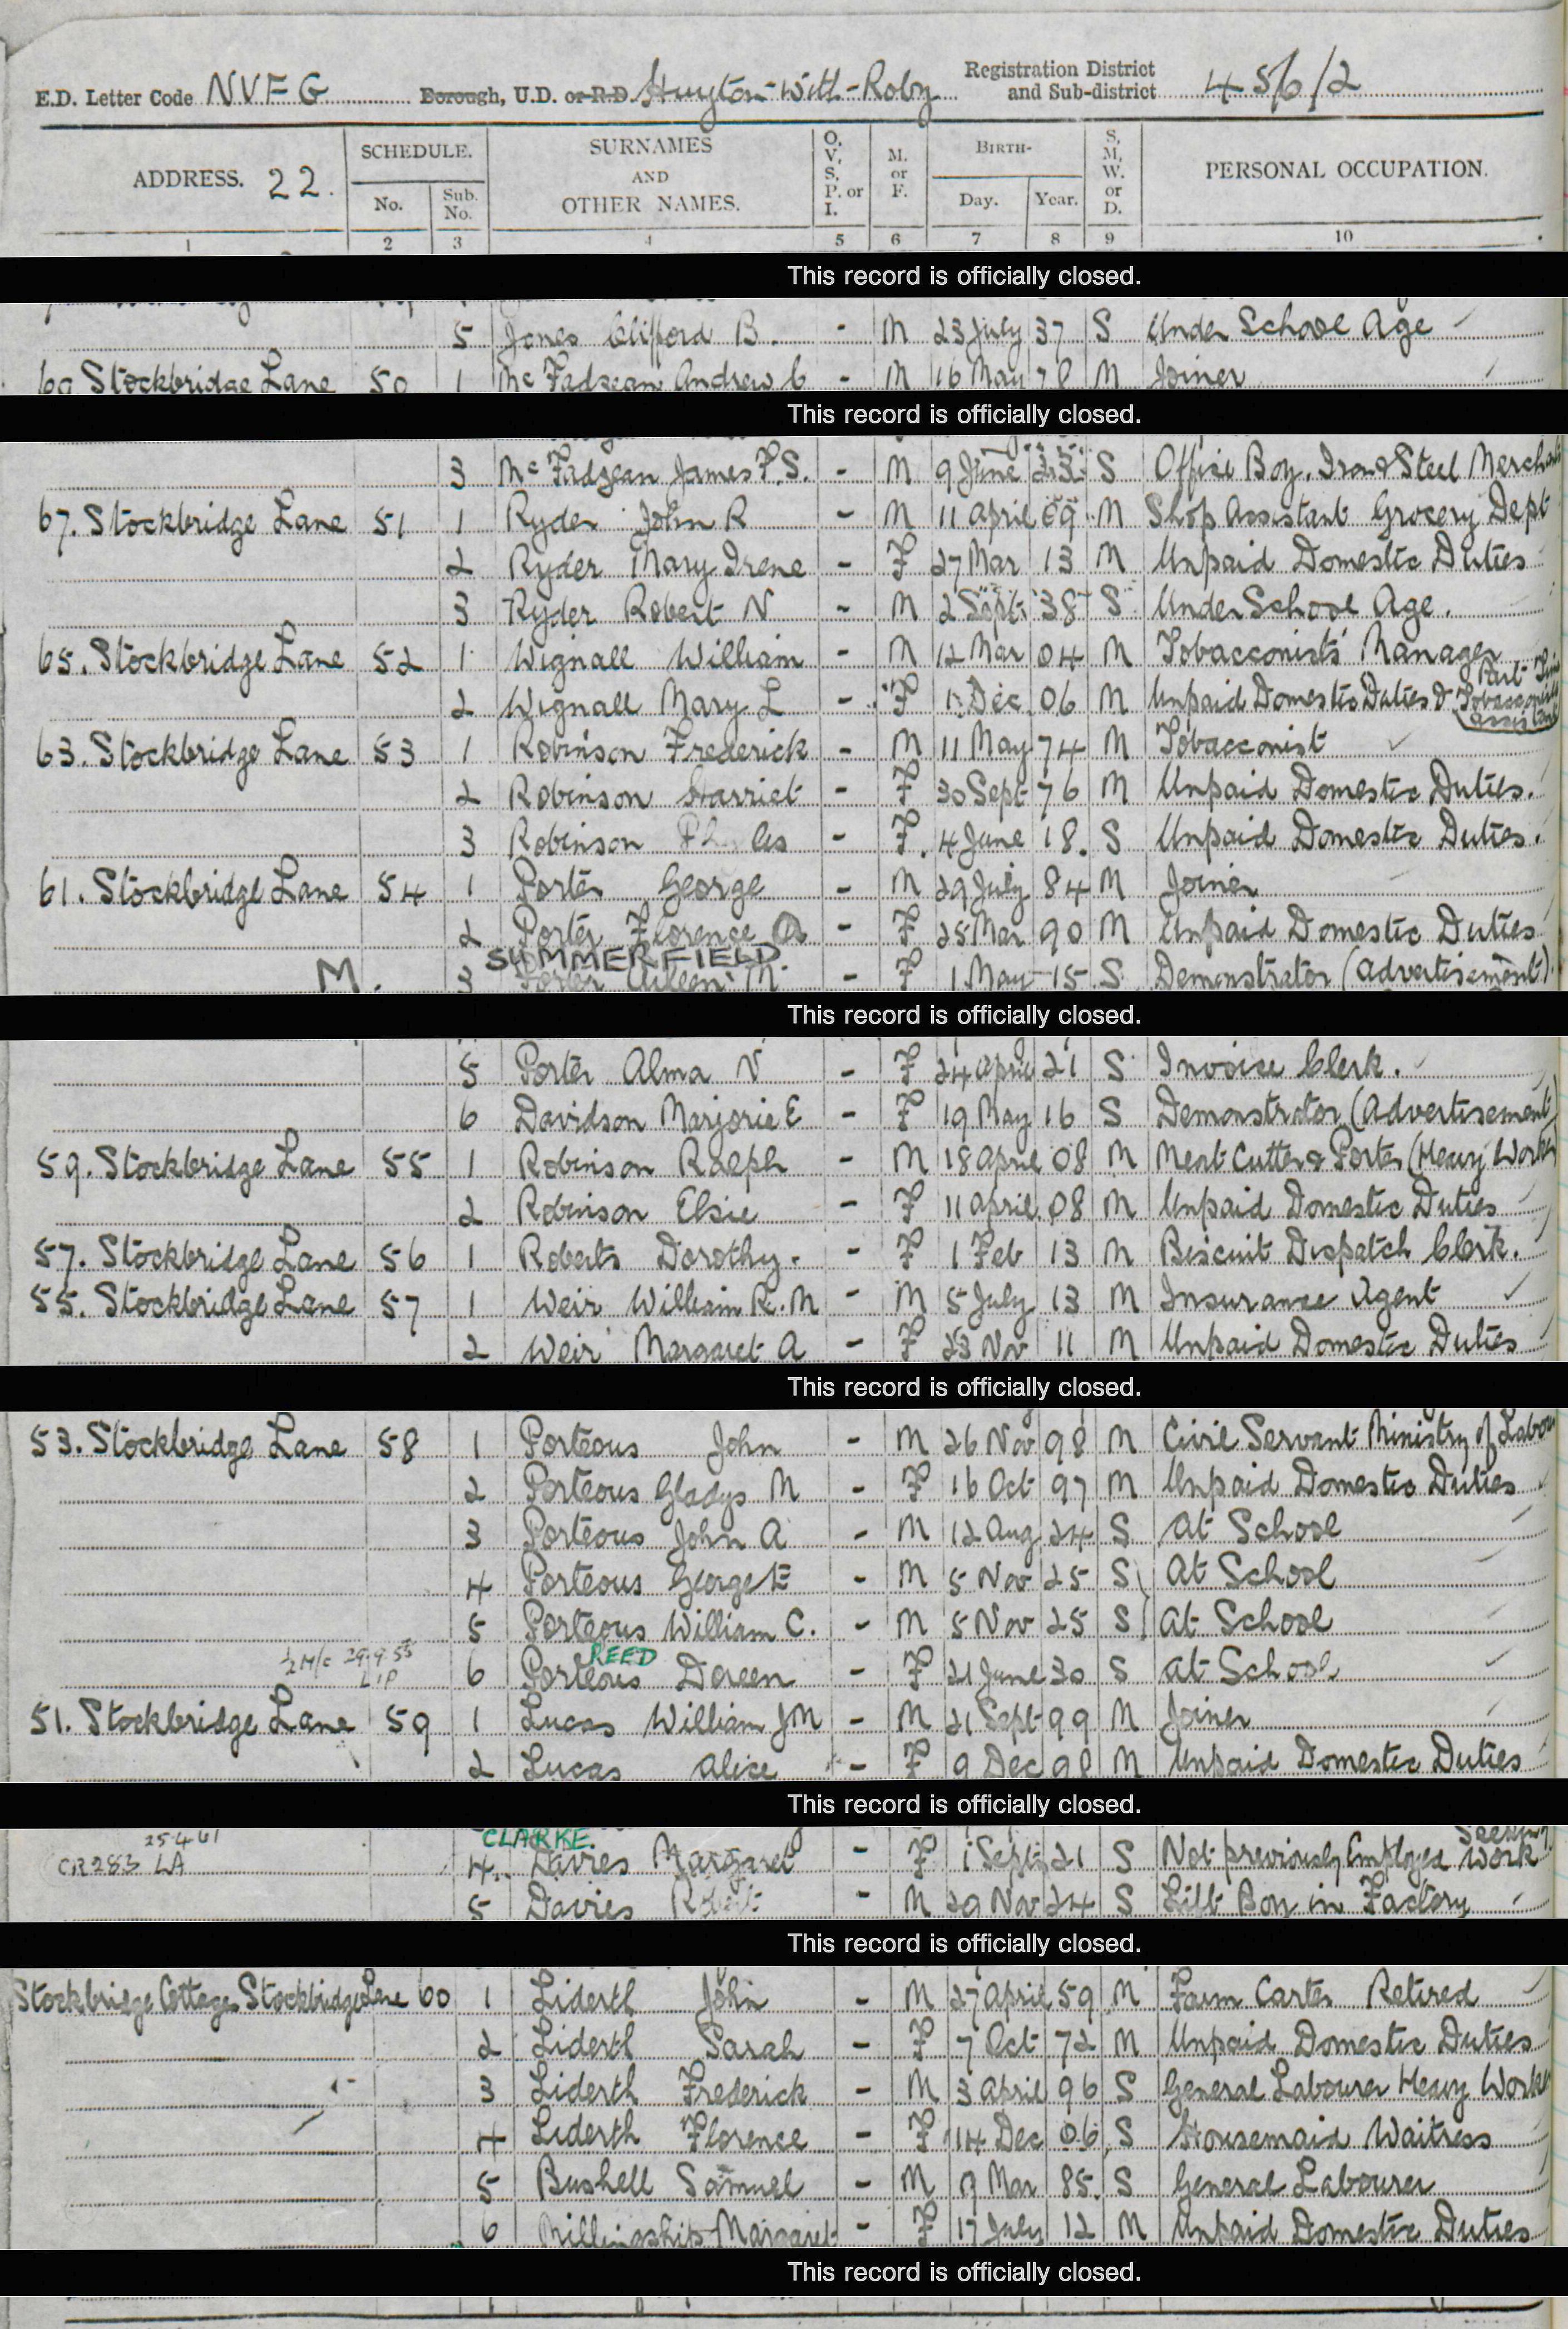 E.D. Letter Code NVFG Borough, U.D. or R.D. Huyton-With-Roby Registration District and Sub-district 456/2
ADDRESS. 22. SCHEDULE. No. Sub. No. SURNAMES AND OTHER NAMES. O, V, S, P, or I. M. or F. BIRTH- Day. Year. S, M, W. or D. PERSONAL OCCUPATION.
1 2 3 4 5 6 7 8 9 10
This record is officially closed.
5 Jones Clifford B. - M 23 July 37 S Under School Age
69 Stockbridge Lane 50 1 McFadzean Andrew C - M 16 May 78 M Joiner
This record is officially closed.
3 McFadzean James F.S. - M 9 June 23 S Office Boy, Iron & Steel Merchants
67. Stockbridge Lane 51 1 Ryder John R - M 11 April 09 M Shop Assistant Grocery Dept
2 Ryder Mary Irene - F 27 Mar 13 M Unpaid Domestic Duties
3 Ryder Robert N - M 2 Sept 38 S Under School Age.
65. Stockbridge Lane 52 1 Wignall William - M 12 Mar 04 M Tobacconists' Manager
2 Wignall Mary L - F 1 Dec 06 M Unpaid Domestic Duties & Part Time Tobacconists assistant
63. Stockbridge Lane 53 1 Robinson Frederick - M 11 May 74 M Tobacconist
2 Robinson Harriet - F 30 Sept 76 M Unpaid Domestic Duties.
3 Robinson - F. 4 June 18. S Unpaid Domestic Duties.
61. Stockbridge Lane 54 1 Porter George - M 29 July 84 M Joiner
2 Porter Florence A - F 25 Mar 90 M Unpaid Domestic Duties
SUMMERFIELD
M. 3 Porter Aileen M. - F 1 May 15 S Demonstrator (Advertisement)
This record is officially closed.
5 Porter Alma V - F 24 April 21 S Invoice Clerk.
6 Davidson Marjorie E - F 19 May 16 S Demonstrator (Advertisement)
59. Stockbridge Lane 55 1 Robinson Ralph - M 18 April 08 M Meat Cutter & Porter (Heavy Work)
2 Robinson Elsie - F 11 April 08 M Unpaid Domestic Duties
57. Stockbridge Lane 56 1 Roberts Dorothy. - F 1 Feb 13 M Biscuit Dispatch Clerk.
55. Stockbridge Lane 57 1 Weir William R.M - M 5 July 13 M Insurance Agent
2 Weir Margaret A - F 23 Nov 11 M Unpaid Domestic Duties
This record is officially closed.
53. Stockbridge Lane 58 1 Porteous John - M 26 Nov 98 M Civil Servant Ministry of Labour
2 Porteous Gladys M - F 16 Oct 97 M Unpaid Domestic Duties
3 Porteous John A - M 12 Aug 24 S At School
4 Porteous George E - M 5 Nov 25 S At School
5 Porteous William C. - M 5 Nov 25 S At School
REED
29.9.55 LIP 6 Porteous Doreen - F 21 June 30 S At School
51. Stockbridge Lane 59 1 Lucas William J M - M 21 Sept 99 M Joiner
2 Lucas Alice - F 9 Dec 98 M Unpaid Domestic Duties
This record is officially closed.
25.4.61 CLARKE.
CR283 LA 4. Davies Margaret - F 1 Sept 21 S Not previously Employed Seeking Work
5 Davies Robert - M 29 Nov 24 S Lift Boy in Factory
This record is officially closed.
Stockbridge Cottages Stockbridge Lane 60 1 Liderth John - M 27 April 59 M Farm Carter Retired
2 Liderth Sarah - F 7 Oct 72 M Unpaid Domestic Duties
3 Liderth Frederick - M 3 April 96 S General Labourer Heavy Worker
4 Liderth Florence - F 14 Dec 06 S Housemaid Waitress
5 Bushell Samuel - M 9 Mar 85. S General Labourer
6 Margaret - F 17 July 12 M Unpaid Domestic Duties
This record is officially closed.